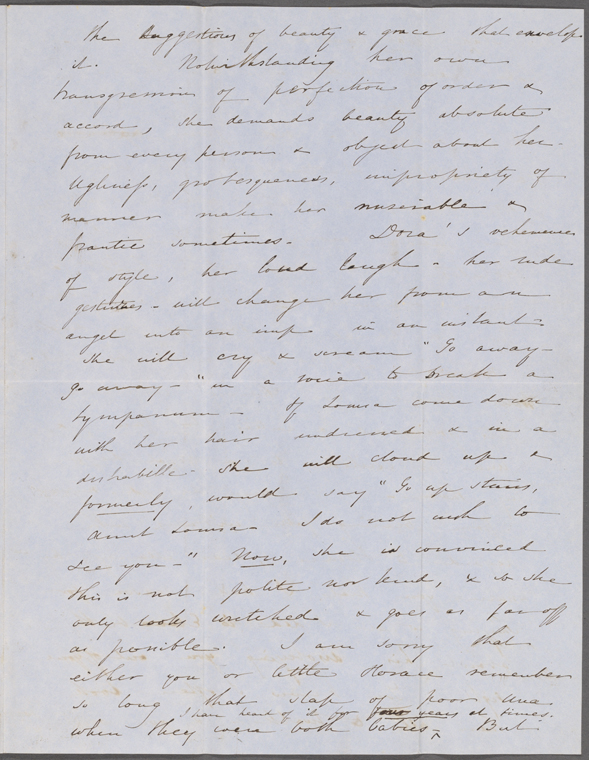 the suggestions of beauty & grace that envelope
it. Notwithstanding her own
transgression of perfection of order &
accord, she demands beauty absolute
from every person & object about her.
Ugliness, grotesqueness, impropriety of
manner make her miserable &
frantic sometimes. Dora's vehemence
of style, her loud laugh - her rude
gestures - will change her from an
angel into an imp in an instant -
She will cry & scream "Go away -
go away - " in a voice to break a
tympanum - If Louisa come down
with her hair undressed & in a
dishabille - she will cloud up &
formerly, would say "Go up stairs,
Aunt Louisa - I do not wish to
see you - " Now, she is convinced
this is not polite nor kind, & so she
only looks wretched & goes as far off
as possible. I am sorry that
either you or little Horace remember
so long that slap of poor Una
I have heard of it for four years at times.
when they were both babies - ^ But